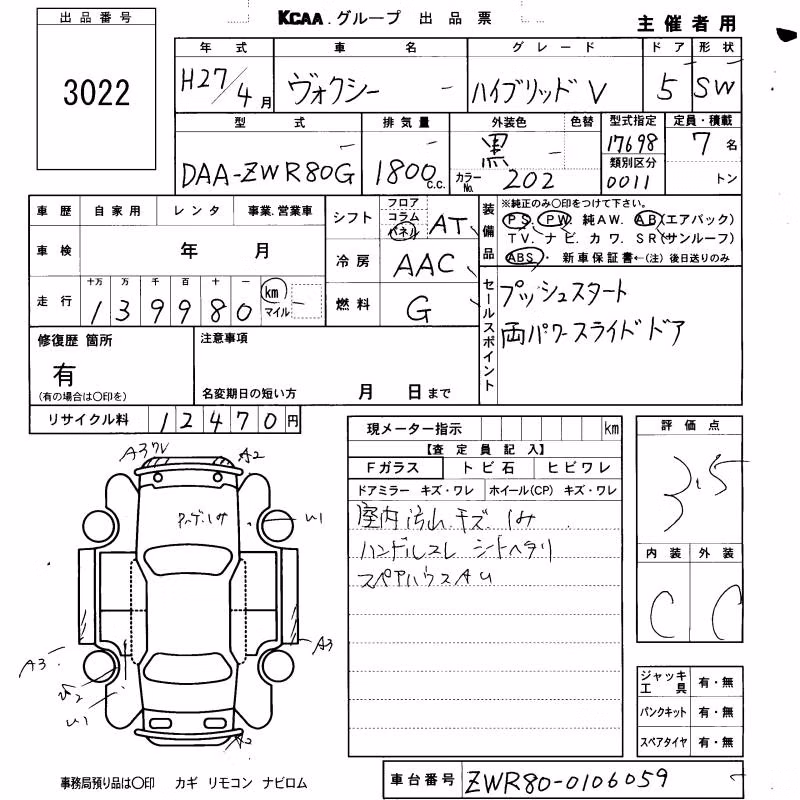 出品番号
3022
KCAA.グループ 出品票
主催者用
年式 車名 グレード ドア 形状
H27/4月 ヴォクシー - ハイブリッドV 5 SW
型式 排気量 外装色 色替 型式指定 定員・積載
DAA-ZWR80G 1800c.c. 黒 - 17698 7名
カラーNo. 202 類別区分 0011 トン
車歴 自家用 レンタ 事業.営業車
車検 年 月
走行 十万 万 千 百 十 一
139980 km マイル
シフト フロア コラム パネル AT
冷房 AAC
燃料 G
装備品
※純正のみ〇印をつけて下さい。
PS. PW. 純AW. AB(エアバック)
TV. ナビ. カワ. SR(サンルーフ)
ABS・ 新車保証書←(注)後日送りのみ
セールスポイント
プッシュスタート
両パワースライドドア
修復歴 箇所
有
(有の場合は〇印を)
注意事項
名変期日の短い方 月 日まで
リサイクル料 12470円
現メーター指示 km
【査定員記入】
Fガラス トビ石 ヒビワレ
ドアミラー キズ・ワレ ホイール(CP) キズ・ワレ
室内汚れ.キズ.
ハンドルスレ シートヘタリ
スペアハウスAU
評価点
3.5
内装 外装
C C
ジャッキ工具 有・無
パンクキット 有・無
スペアタイヤ 有・無
A3ワレ
A2
U1
A3
A3
U1
A2
事務局預り品は〇印 カギ リモコン ナビロム
車台番号 ZWR80-0106059